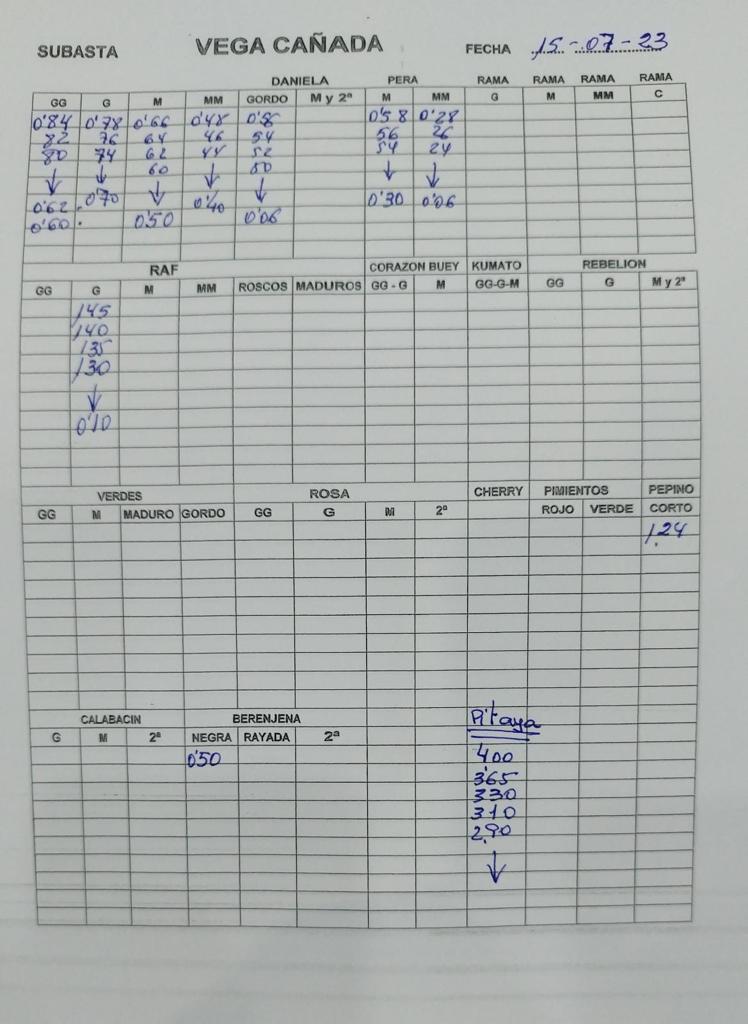 SUBASTA VEGA CAÑADA FECHA 15-07-23
DANIELA PERA RAMA RAMA RAMA RAMA
GG G M MM GORDO M y 2ª M MM G M MM C
0'84 0'78 0'66 0'48 0'58 0'28
82 76 64 46 54 56 26
80 74 62 44 52 54 24
↓ ↓ 60 ↓ 50 ↓ ↓
0'62 0'70 ↓ 0'40 ↓ 0'30 0'06
0'60 0'50 0'06
RAF CORAZON BUEY KUMATO REBELION
GG G M MM ROSCOS MADUROS GG - G M GG-G-M GG G M y 2ª
145
140
135
130
↓
0'10
VERDES ROSA CHERRY PIMIENTOS PEPINO
GG M MADURO GORDO GG G M 2ª ROJO VERDE CORTO
1,24
CALABACIN BERENJENA Pitaya
G M 2ª NEGRA RAYADA 2ª
0'50 4'00
3'65
3'30
3'10
2,90
↓